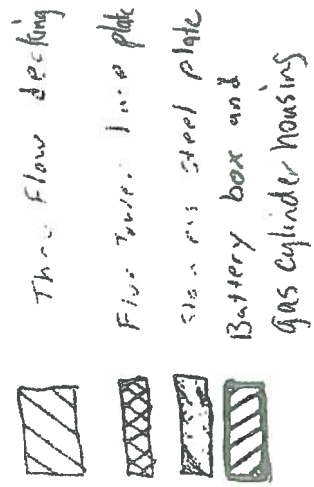 Thru Flow decking
plate
steel plate
Battery box and
gas cylinder housing